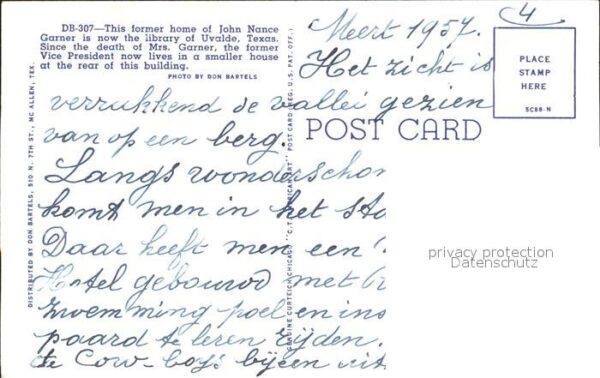 DB-307—This former home of John Nance
Garner is now the library of Uvalde, Texas.
Since the death of Mrs. Garner, the former
Vice President now lives in a smaller house
at the rear of this building.
PHOTO BY DON BARTELS
4
Meert 1957.
Het zicht is
verrukkend de vallei gezien
van op een berg.
Langs wonderschon
komt men in het sta
Daar heeft men een
Hotel gebouwd met
zwemming-poel en ins
paard te leren rijden.
te Cow-boys bijeen uit
POST CARD
PLACE
STAMP
HERE
5C88-N
DISTRIBUTED BY DON BARTELS, 510 N. 7TH ST., MC ALLEN, TEX.
GENUINE CURTEICH-CHICAGO "C.T. AMERICAN ART" POST CARD (REG. U.S. PAT. OFF.)
privacy protection
Datenschutz